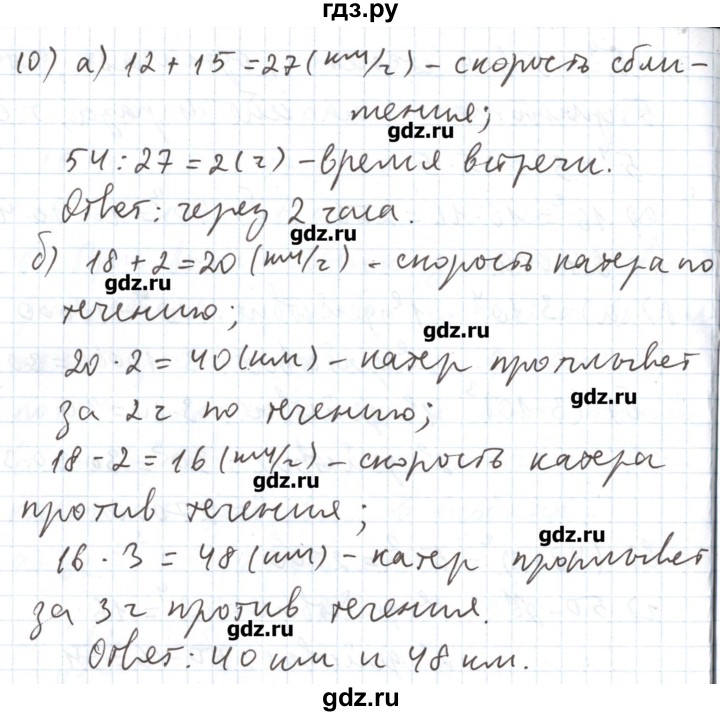 гдз.ру
10) а) 12 + 15 = 27 (км/ч) - скорость сбли-
жения;
gdz.ru
54 : 27 = 2 (ч) - время встречи.
Ответ: через 2 часа.
gdz.ru
б) 18 + 2 = 20 (км/ч) - скорость катера по
gdz.ru
течению;
gdz.ru
20 · 2 = 40 (км) - катер проплывет
gdz.ru
за 2 ч по течению;
18 - 2 = 16 (км/ч) - скорость катера
gdz.ru
против течения;
gdz.ru
16 · 3 = 48 (км) - катер проплывет
за 3 ч против течения.
gdz.ru
Ответ: 40 км и 48 км.
gdz.ru